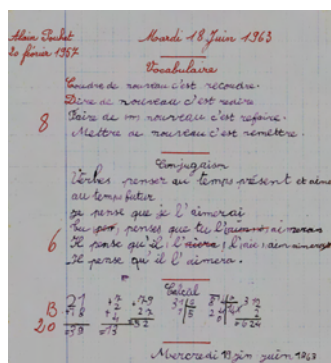 Alain Pochet Mardi 18 Juin 1963
20 février 1957
Vocabulaire
Coudre de nouveau c'est recoudre.
Dire de nouveau c'est redire
8 Faire de nouveau c'est refaire.
Mettre de nouveau c'est remettre.
Conjugaison
Verbes penser au temps présent et aimer
au temps futur
je pense que je l'aimerai
Tu penses que tu l'aimeras
6 Il pense qu'il l'aimera
Il pense qu'il l'aimera.
Calcul
B 21 +7 +79 312
20 +18 +4 27 2
=39 =13 =52 =624
Mercredi 19 juin 1963